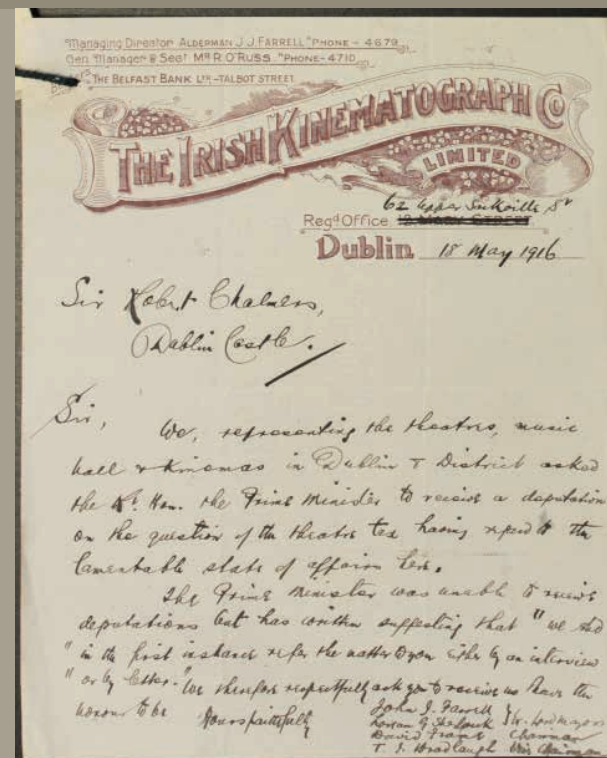 Managing Director ALDERMAN J.J. FARRELL "PHONE - 4679
Gen. Manager & Secy MR R. O'RUSS. "PHONE - 4710
THE BELFAST BANK LTD - TALBOT STREET
THE IRISH KINEMATOGRAPH CO
LIMITED
62 Upper Sackville St
Regd Office 12 MARY STREET
Dublin 18 May 1916
Sir Robert Chalmers,
Dublin Castle.
Sir,
We, representing the theatres, music
hall & Kinemas in Dublin & District asked
the Rt. Hon. the Prime Minister to receive a deputation
on the question of the theatre tax having regard to the
lamentable state of affairs here.
The Prime Minister was unable to receive
deputations but has written suggesting that "we shd
" in the first instance refer the matter to you either by an interview
" or by letter." We therefore respectfully ask you to receive us have the
honour to be Yours faithfully
John J. Farrell
David Chairman
T. J. Bradlaugh Vice Chairman